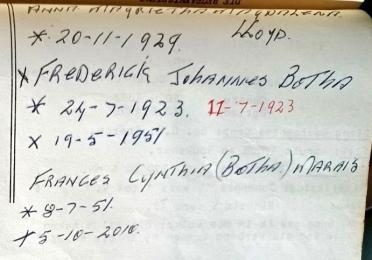 * 20-11-1929. LLOYD.
x FREDERICK JOHANNES BOTHA
* 24-7-1923. 11-7-1923
x 19-5-1951
FRANCES CYNTHIA (BOTHA) MARAIS
* 8-7-51.
† 5-10-2010.